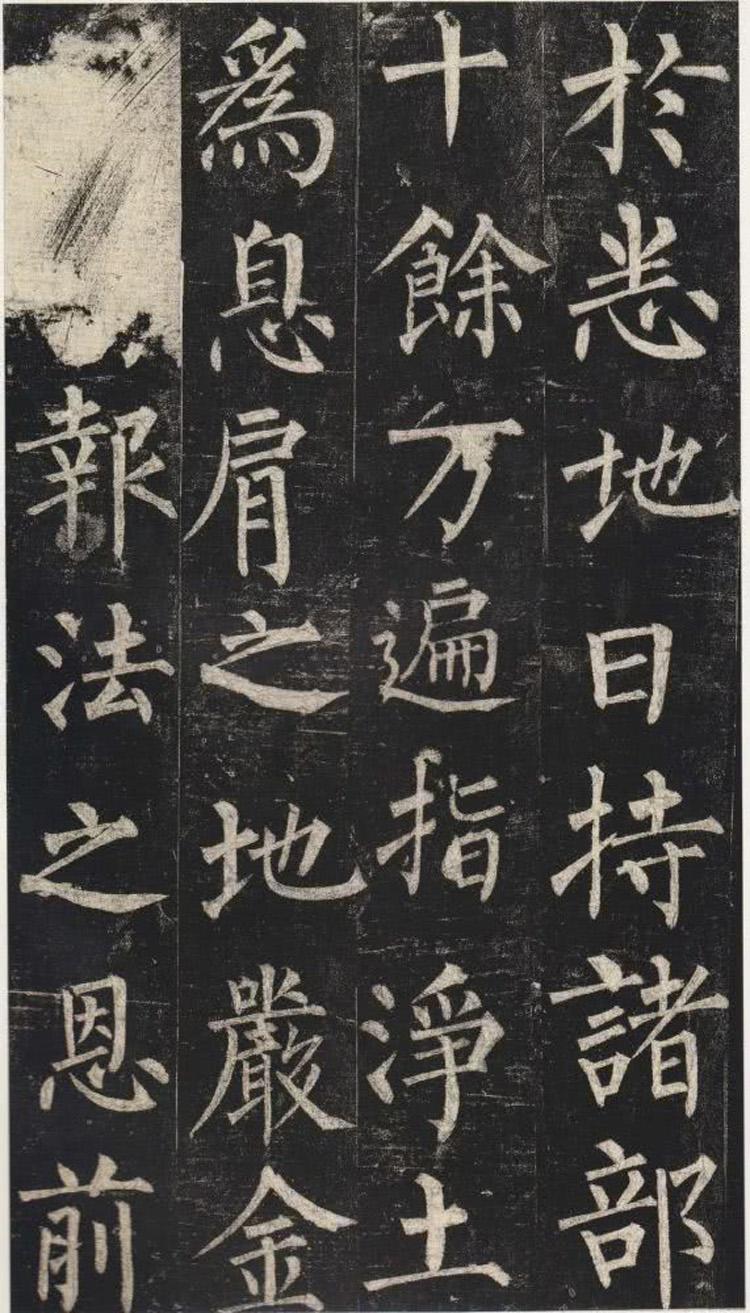 於悉地日持諸部
十餘万遍指淨土
爲息肩之地嚴金
報法之恩前